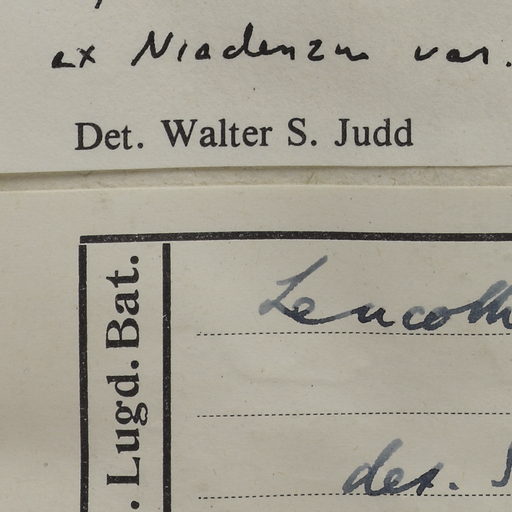 ex Niedenzu var.
Det. Walter S. Judd
. Lugd. Bat.
Leucoth
det. S